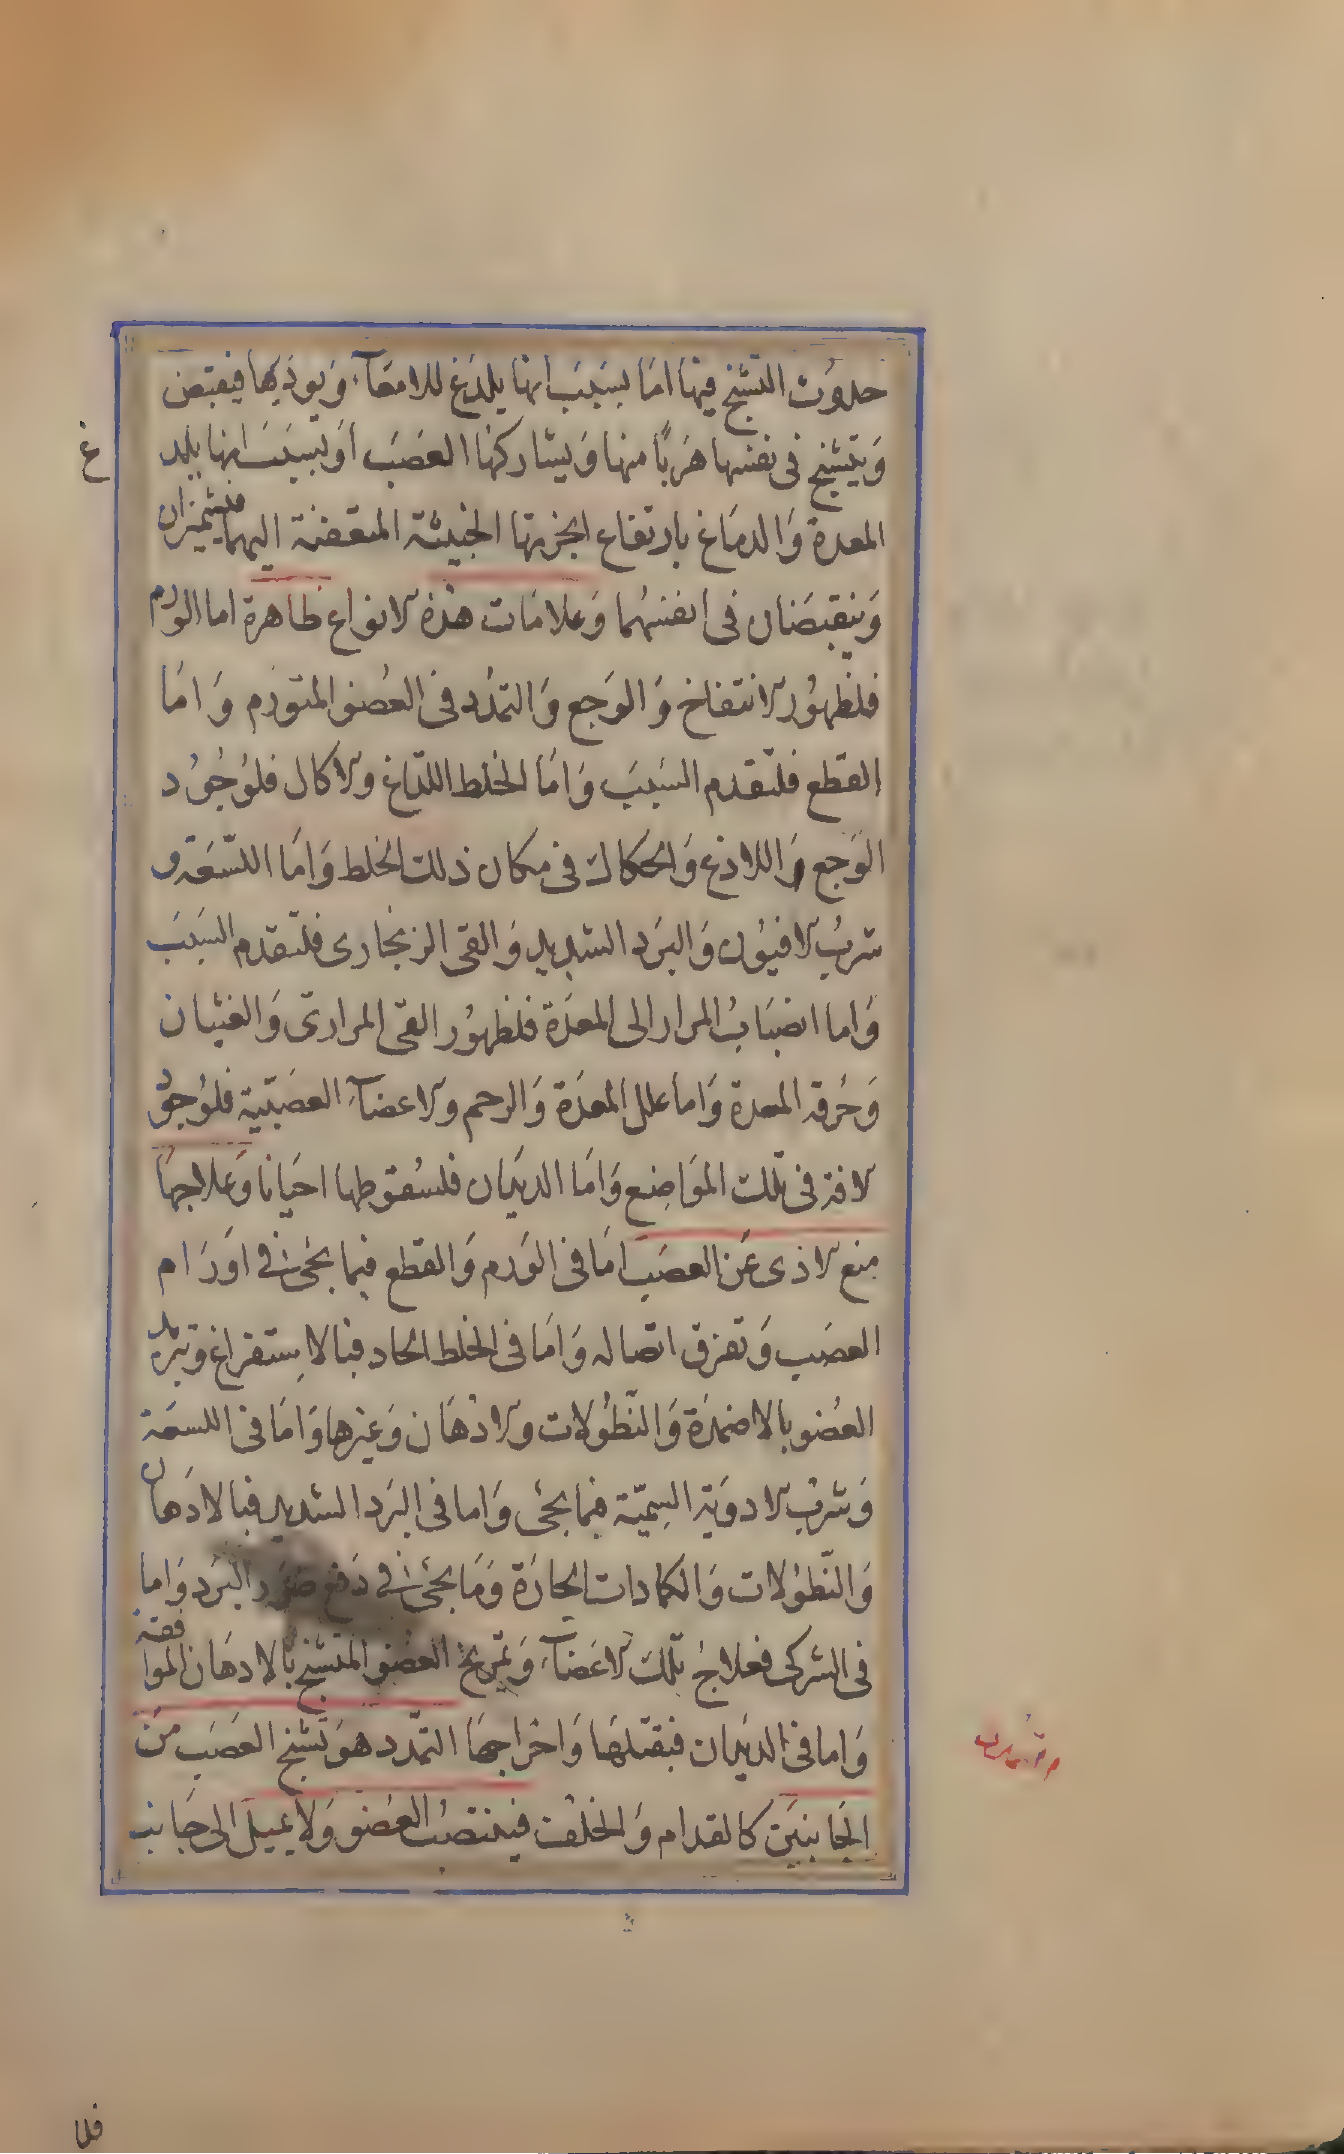 حدوث التشنج فيها اما بسبب انها يلدغ للامعآء ويوذيها فيقبض
ويتشنج فى نفسها هربًا منها ويشاركها العصب او بسبب انها يلد
غ
المعدة والدماغ بارتفاع ابخرتها الخبيثة المتعفنة اليهما فيشمئزان
وينقبضان فى انفسهما وعلامات هذه الانواع ظاهرة اما الورم
فلظهور الانتفاخ والوجع والتمدد فى العضو المتورم واما
القطع فلتقدم السبب واما الخلط اللذاغ والاكال فلوجود
الوجع واللاذع والحكاك فى مكان ذلك الخلط واما اللسعة و
شرب الافيون والبرد الشديد والقى الزنجارى فلتقدم السبب
واما انصباب المرار الى المعدة فلظهور القى المرارى والغثيان
وحرقة المعدة واما علل المعدة والرحم والاعضآء العصبية فلوجود
الافة فى تلك المواضع واما الديدان فلسقوطها احيانا وعلاجها
منع الاذى عن العصب اما فى الورم والقطع فيما يجئ فى اورام
العصب وتفرق اتصاله واما فى الخلط الحاد فبالاستفراغ وتبريد
العضو بالاضمدة والنطولات والادهان وغيرها واما فى اللسعة
وشرب الادوية السمية فيما يجئ واما فى البرد الشديد فبالادهان
والنطولات والكمادات الحارة وما يجئ فى دفع ضرر البرد واما
فى الشركى فعلاج تلك الاعضآء وتمريخ العضو المتشنج بالادهان الموافقة
واما فى الديدان فبقتلها واخراجها التمدد هو تشنج العصب من
الجانبين كالقدام والخلف فينتصب العضو ولا يميل الى جانب
فلا